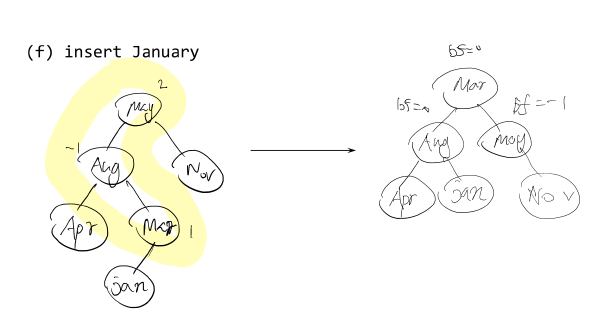 (f) insert January
2
May
-1
Aug
Nov
Apr
Mar
1
jan
bf=0
Mar
bf=0
bf=-1
Aug
May
Apr
jan
Nov